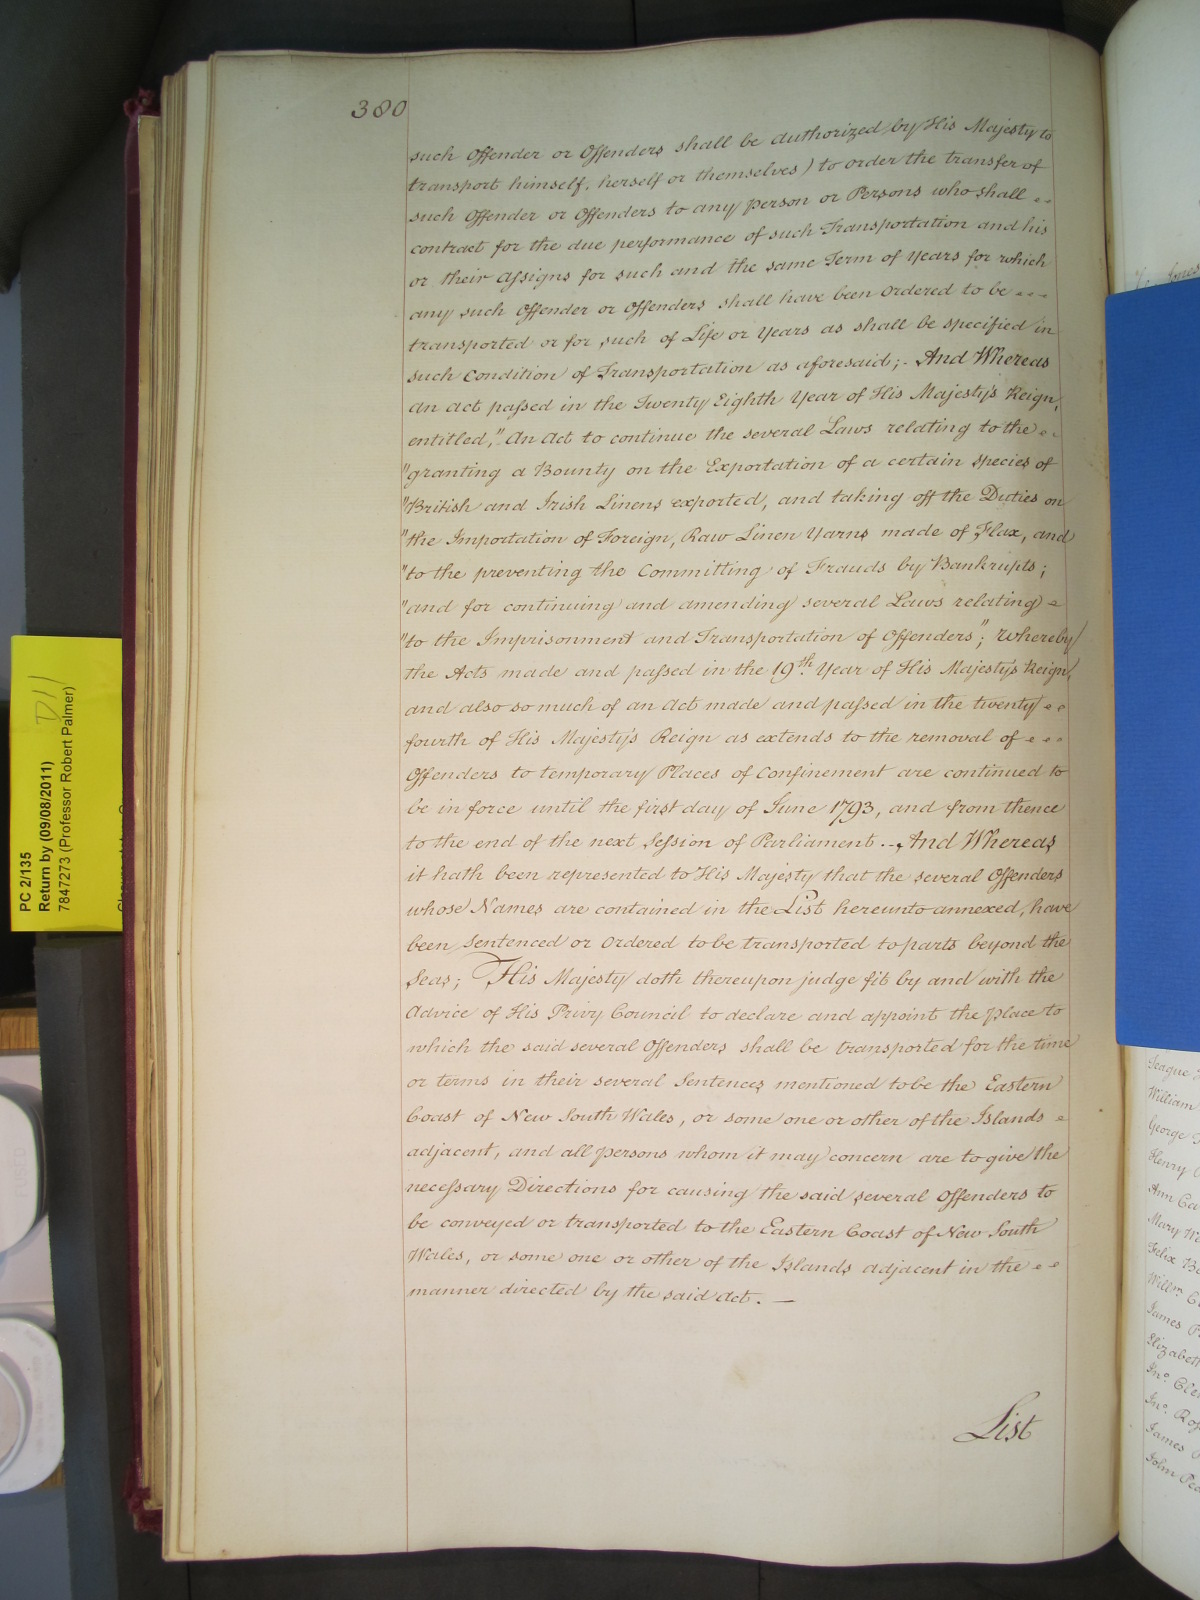 380
such Offender or Offenders shall be authorized by His Majesty to
transport himself, herself or themselves) to order the transfer of
such Offender or Offenders to any person or Persons who shall
contract for the due performance of such Transportation and his
or their Assigns for such and the same Term of Years for which
any such Offender or Offenders shall have been Ordered to be
transported or for such of Life or Years as shall be specified in
such Condition of Transportation as aforesaid;- And Whereas
an act passed in the Twenty Eighth Year of His Majesty's Reign,
entitled, "An Act to continue the several Laws relating to the
"granting a Bounty on the Exportation of a certain Species of
"British and Irish Linens exported, and taking off the Duties on
"the Importation of Foreign, Raw Linen Yarns made of Flax, and
"to the preventing the Committing of Frauds by Bankrupts;
"and for continuing and amending several Laws relating
"to the Imprisonment and Transportation of Offenders"; whereby
the Acts made and passed in the 19th. Year of His Majesty's Reign,
and also so much of an Act made and passed in the twenty
fourth of His Majesty's Reign as extends to the removal of
Offenders to temporary Places of Confinement are continued to
be in force until the first day of June 1793, and from thence
to the end of the next Session of Parliament.., And Whereas
it hath been represented to His Majesty that the several Offenders
whose Names are contained in the List hereunto annexed, have
been Sentenced or Ordered to be transported to parts beyond the
Seas; His Majesty doth thereupon judge fit by and with the
Advice of His Privy Council to declare and appoint the place to
which the said several Offenders shall be transported for the time
or terms in their several Sentences mentioned to be the Eastern
Coast of New South Wales, or some one or other of the Islands
adjacent, and all persons whom it may concern are to give the
necessary Directions for causing the said several Offenders to
be conveyed or transported to the Eastern Coast of New South
Wales, or some one or other of the Islands adjacent in the
manner directed by the said Act. —
List
PC 2/135
Return by (09/08/2011)
7847273 (Professor Robert Palmer)
D11
Jones
League
William
George
Henry
Ann
Mary
Felix
Willm
James
Elizabeth
Jno.
Jno.
James
John